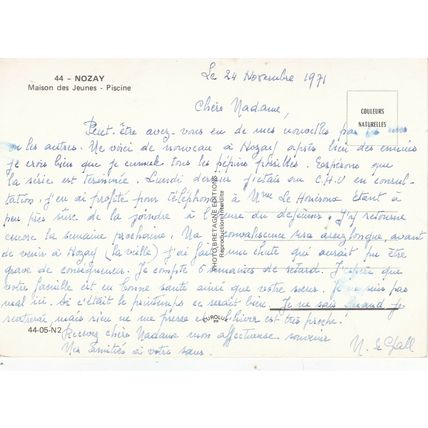 44 - NOZAY
Maison des Jeunes - Piscine
Le 24 Novembre 1971
COULEURS
NATURELLES
Chère Madame,
Peut-être avez-vous eu de mes nouvelles par les unes
ou les autres. Me voici de nouveau à Nozay après bien des ennuis
je crois bien que je cumule tous les pépins possibles. Espérons que
la série est terminée. Lundi dernier j'étais au C.H.U en consul-
tation, j'en ai profité pour téléphoner à Mme Le étant à
peu près sûre de la joindre à l'heure du déjeuner. J'y retourne
encore la semaine prochaine. Ma convalescence sera assez longue, avant
de venir à Nozay (la veille) j'ai fait une chute qui aurait pu être
grave de conséquences. Je compte 6 semaines de retard. J'espère que
votre famille est en bonne santé ainsi que votre sœur. Je ne suis pas
mal ici. Si c'était le printemps ce serait bien. Je ne sais quand je
rentrerai, mais rien ne me presse l'hiver est très proche.
Recevez chère Madame mon affectueux souvenir
Mes amitiés à votre sœur.
44-05-N2
PHOTO BRETAGNE EDITIONS
Reproduction interdite
EUROLUX